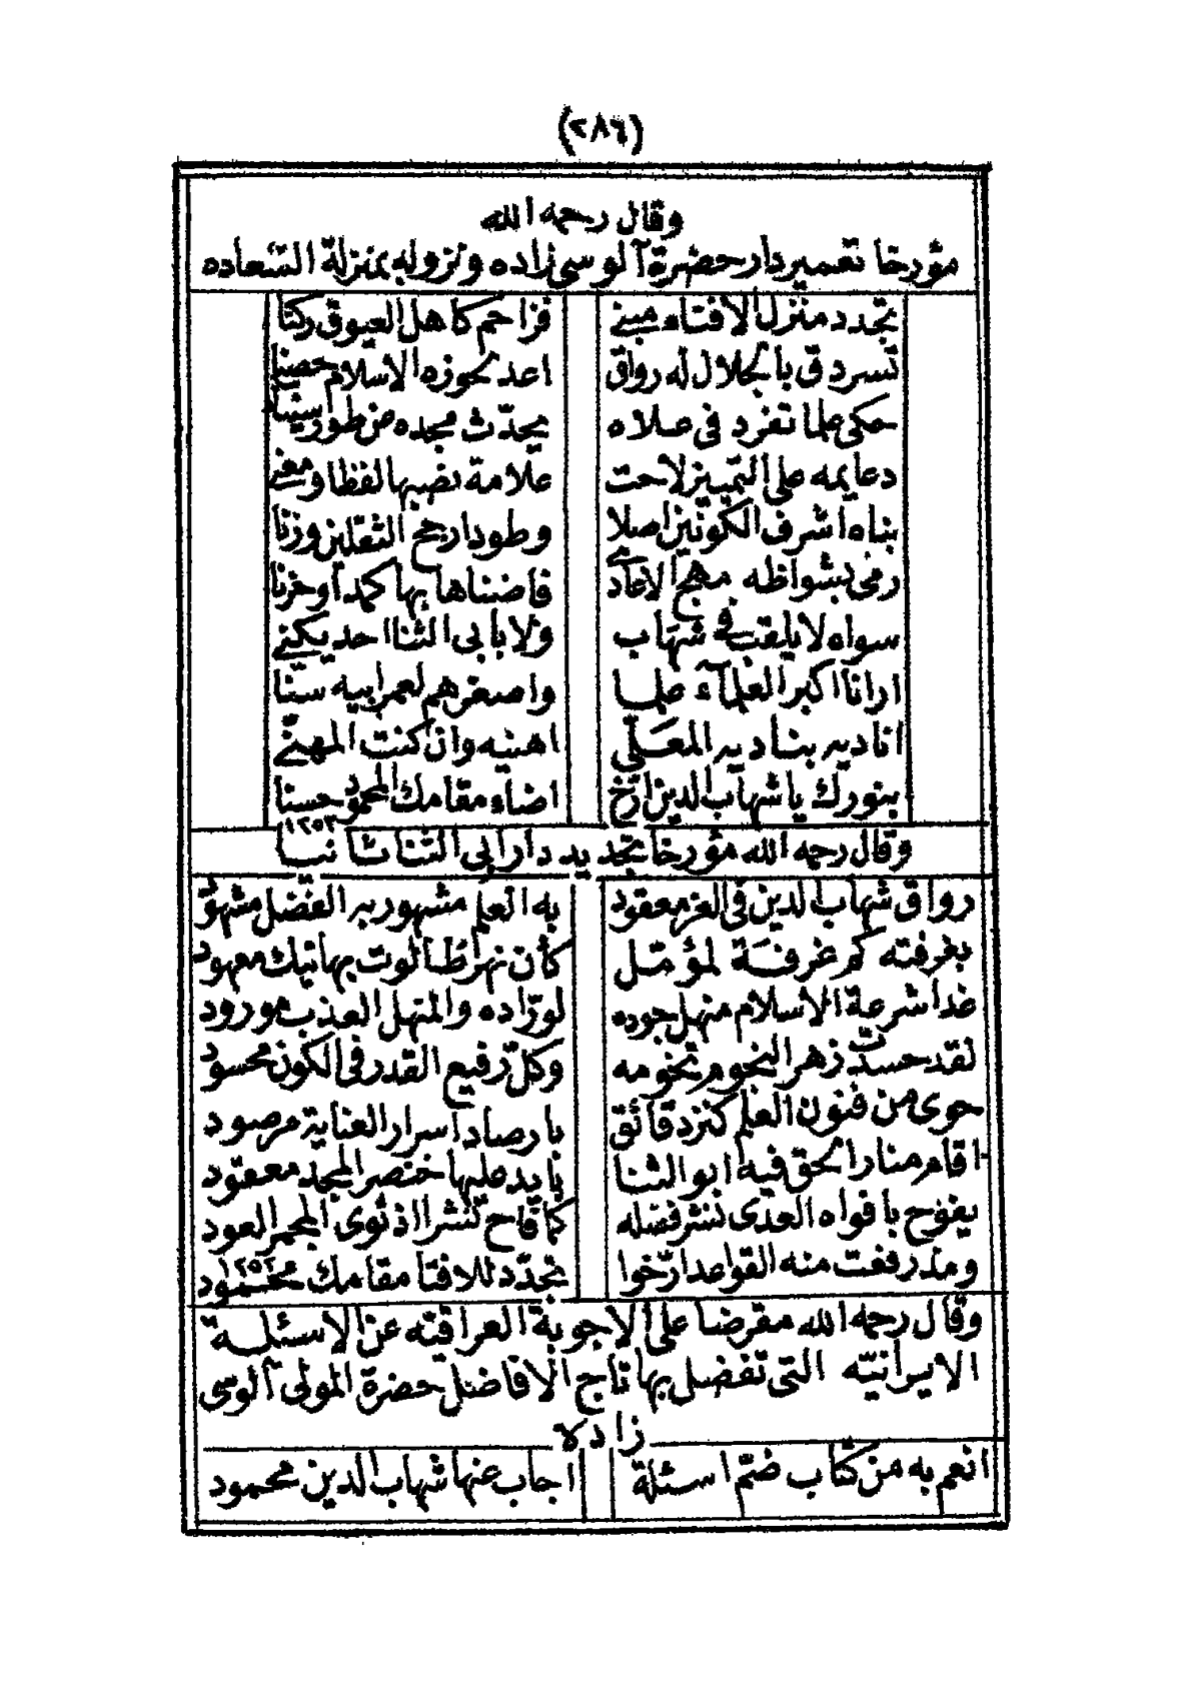 (٢٨٦)
وقال رحمه الله
مؤرخا تعمير دار حضرة آلوسي زاده ونزوله بمنزلة السعاده
تجدد منزل الافتاء مبنى فزاحم كاهل العيوق ركنا
تسردق بالجلال له رواق اعد لحوزه الاسلام حصنا
حكى علما تفرد في علاه يحدّث مجده عن طور سينا
دعايمه على التمييز لاحت علامة نصبها لفظا ومعنى
بناه اشرف الكونين اصلا وطودا رجح الثقلين وزنا
رمى بشواظه مهج الاعادى فاضناها بها كمدا وحزنا
سواه لا يلقب في شهاب ولا بابي الثنا احد يكنى
ارانا اكبر العلمآء علما واصغرهم لعمر ابيه سنّا
اناديه بناديه المعلّى اهنيه وان كنت المهنّى
بنورك يا شهاب الدين ارّخ اضاء مقامك المحمود حسنا
١٢٥٣
وقال رحمه الله مؤرخا تجديد دار ابي الثنا ثانيا
رواق شهاب الدين في العز معقود به العلم مشهور به الفضل مشهود
بغرفته كم غرفة لمؤمّل كأن نهر طالوت بهاتيك معهود
غدا شرعة الاسلام منهل جوده لورّاده والمنهل العذب مورود
لقد حسدت زهر النجوم تخومه وكلّ رفيع القدر في الكون محسود
حوى من فنون العلم كنز دقائق بارصاد اسرار العناية مرصود
اقام منار الحق فيه ابو الثنا بايد عليها خنصر المجد معقود
يفوح بافواه العدى نشر فضله كما فاح نشرا اذ ثوى المجمر العود
ومذ رفعت منه القواعد ارّخوا تجدّد للافتا مقامك محمود
١٢٥٢
وقال رحمه الله مقرضا على الاجوبة العراقيه عن الاسئلة
الايرانيّه التي تفضل بها تاج الافاضل حضرة المولى آلوسي
زاده
انعم به من كتاب ضمّ اسئلة اجاب عنها شهاب الدين محمود